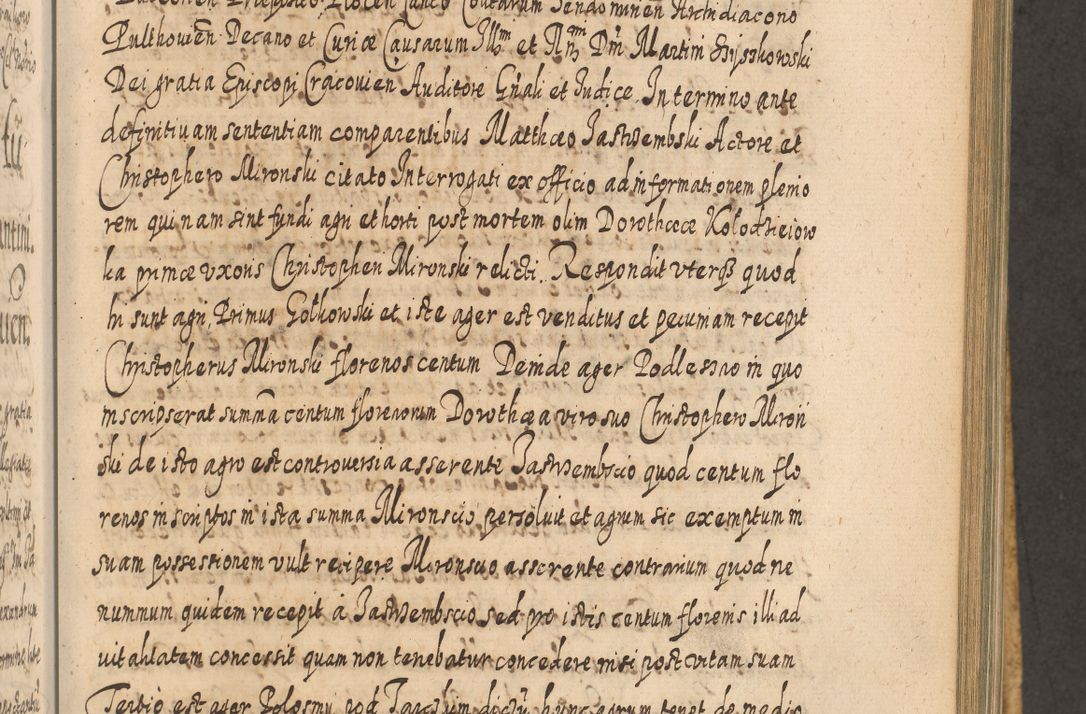 Canco Cantarum Sendominen Archidiacono
Pulthovien Decano et Curiæ Causarum Illm et Rm Dm Martini Szyszkowski
Dei gratia Episcopi Cracovien Auditore Gnali et Iudice. In termino ante
definitiuam sententiam comparentibus Matthæo Jastrzembski Actore et
Christophero Mironski citato Interrogati ex officio ad informationem plenio
rem quinam sint fundi agri et horti post mortem olim Dorotheæ Kołodzieiow
ka primæ vxoris Christopheri Mironski relicti. Respondit vterq3 quod
hi sunt agri, Primus Golkowski et iste ager est venditus et pecuniam recepit
Christopherus Mironski florenos centum Deinde ager Podlesny in quo
inscripserat summa centum florenorum Dorothæa viro suo Christophero Miron
ski de isto agro est controversia asserente Jastrzembscio quod centum flo
renos inscriptos in ista summa Mironscio persoluit et agrum sic exemptum in
suam possessionem vult recipere Mironscio asserente contrarium quod ne
nummum quidem recepit à Jastrzembscio sed pro istis centum florenis illi ad
vitalitatem concessit quam non tenebatur concedere nisi post vitam suam
Tertio est ager hunc agrum tenet de medio